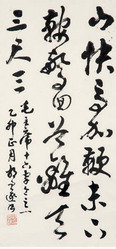 山快马加鞭未下
鞍驚回首離天
三尺三
毛主席十六字令之一
乙卯正月